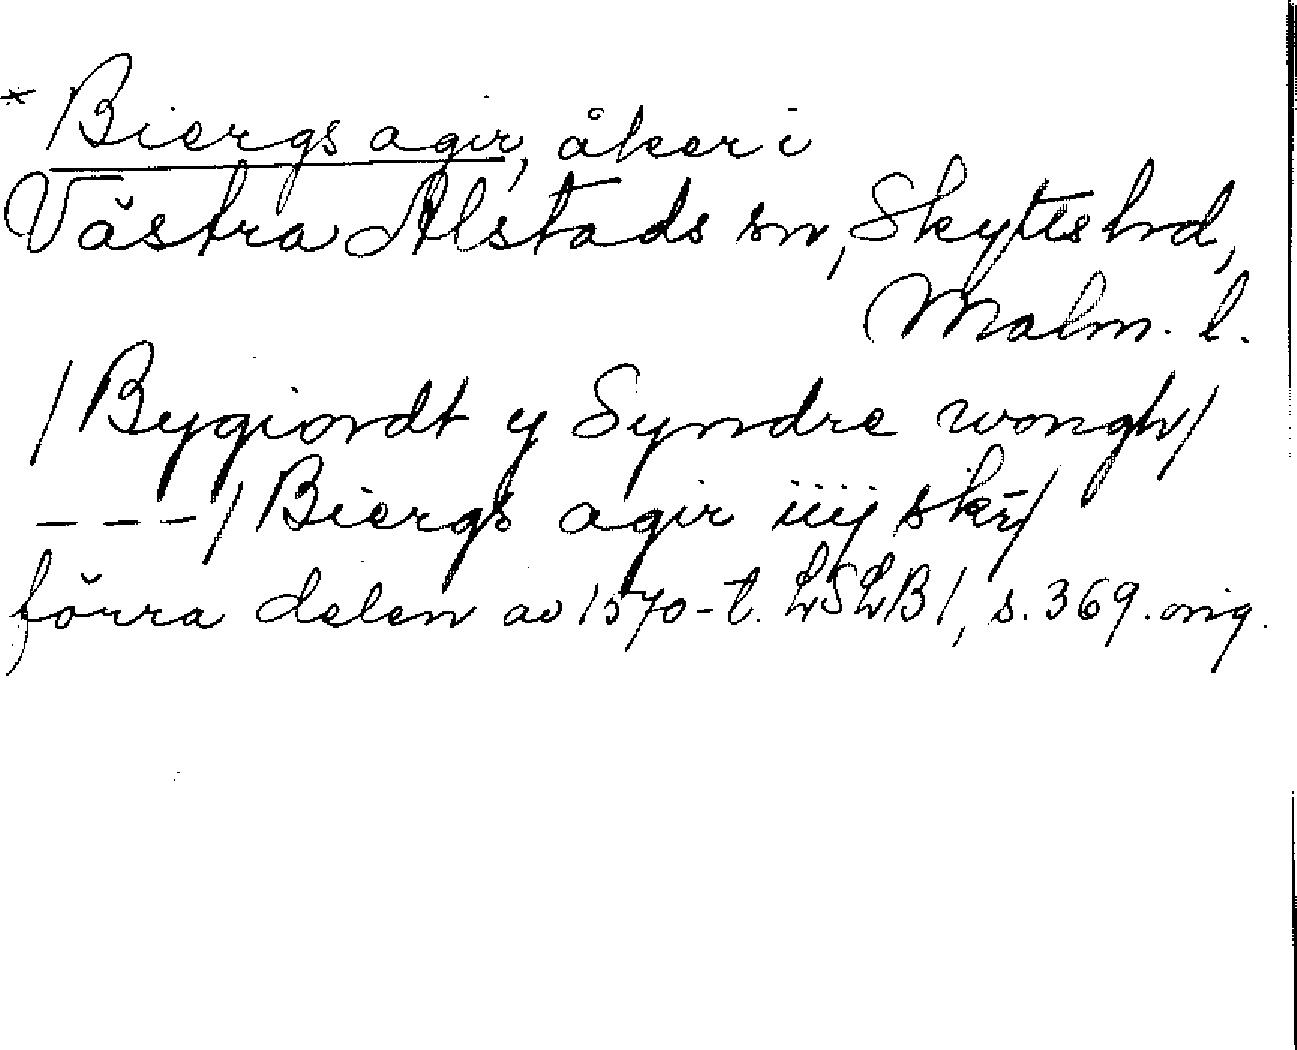 * Biergs agir, åker i
Västra Alstads sn, Skytts hd,
Malm. l.
/Bygiordt y Syndre wongh/
---/Biergs agir iiij skr/
förra delen av 1570-t. LSLB1, s. 369. orig.